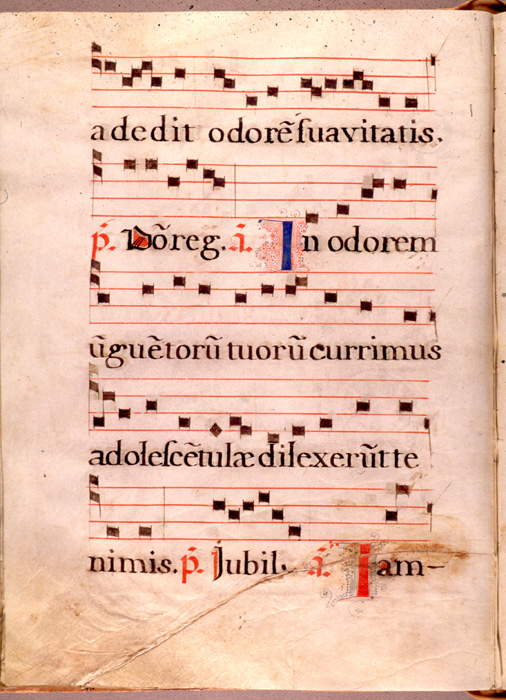 a dedit odorē suavitatis.
p̄. Dōreg. ā. In odorem
ūguētorū tuorū currimus
adolescētulæ dilexerūt te
nimis. p̄. Jubil. ā. Iam-